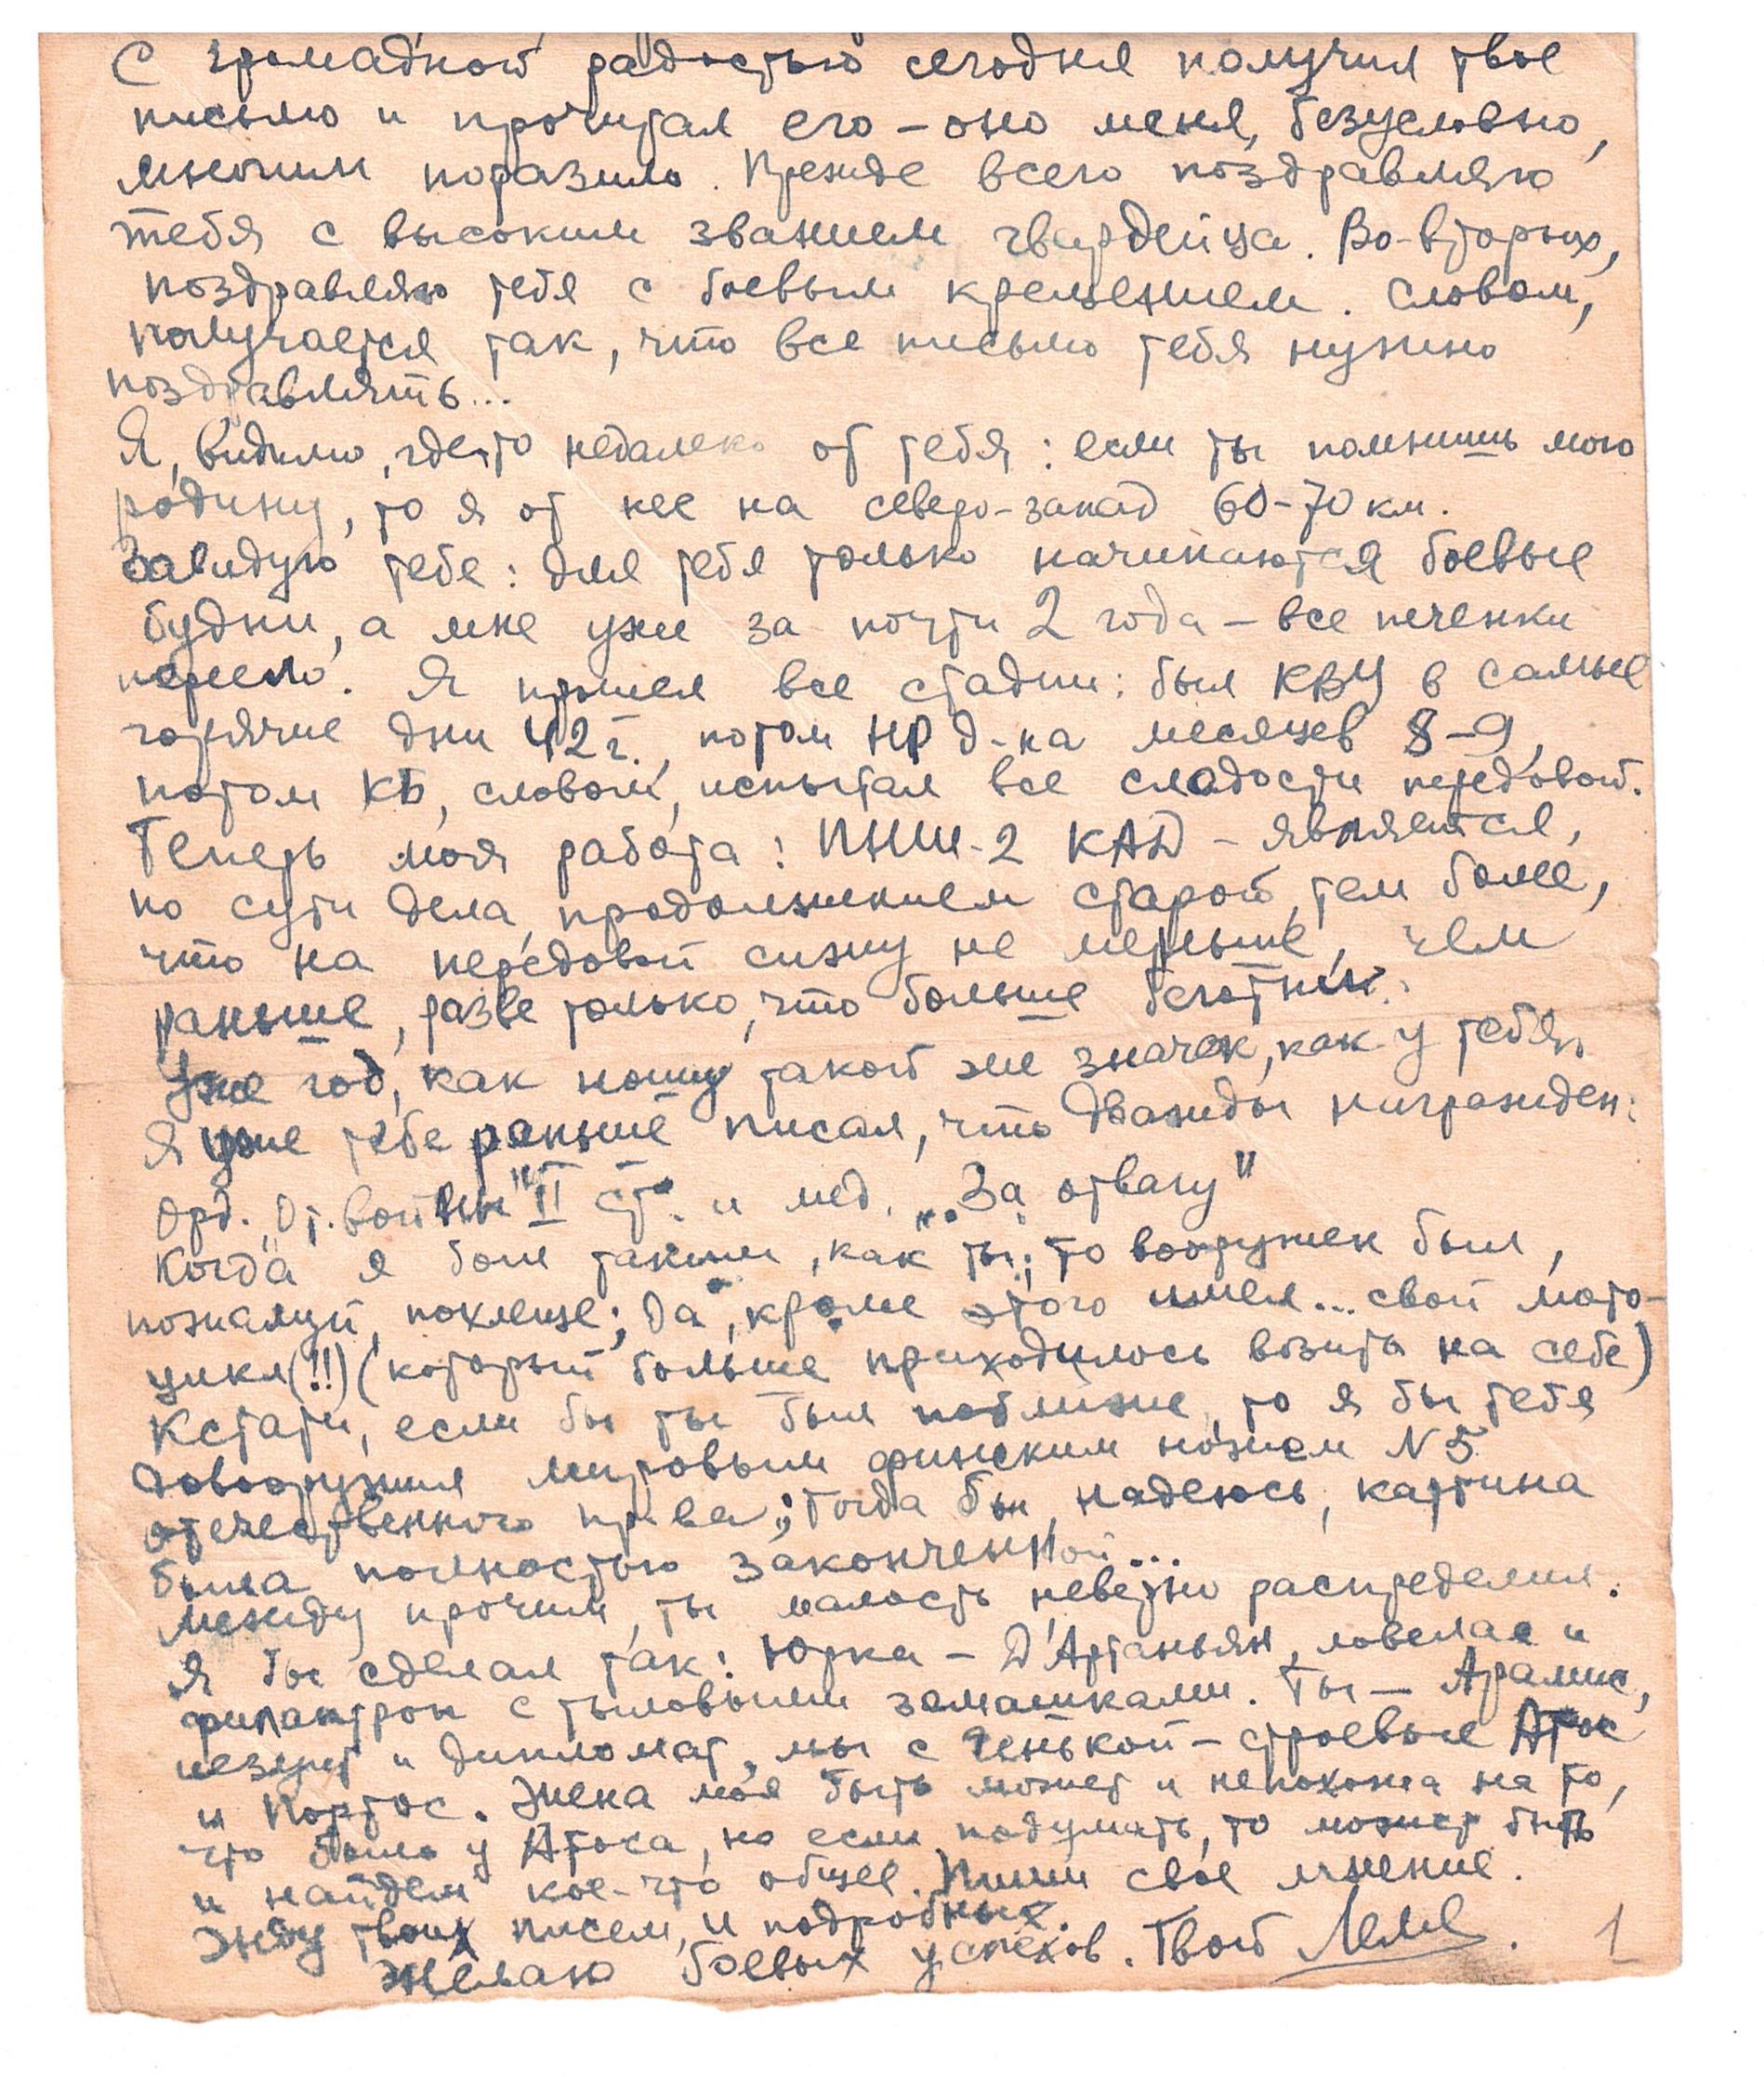 С громадной радостью сегодня получил твое
письмо и прочитал его – оно меня, безусловно,
многим поразило. Прежде всего поздравляю
тебя с высоким званием гвардейца. Во-вторых,
поздравляю тебя с боевым крещением. Словом,
получается так, что все письмо тебя нужно
поздравлять...
Я, видимо, где-то недалеко от тебя: если ты помнишь мою
родину, то я от нее на северо-запад 60-70 км.
Завидую тебе: для тебя только начинаются боевые
будни, а мне уже за почти 2 года – все печенки
переело. Я прошел все стадии: был КВУ в самые
горячие дни 42 г., потом НР д-на месяцев 8-9,
потом КБ, словом, испытал все сладости передовой.
Теперь моя работа: ПНШ-2 КАД – является,
по сути дела, продолжением старой, тем более,
что на передовой сижу не меньше, чем
раньше, разве только, что больше беготни.
Уже год, как ношу такой же значек, как у тебя.
Я уже тебе раньше писал, что дважды награжден:
Орд. „От. войны" II ст. и мед. „За отвагу"
Когда я был таким, как ты, то вооружен был,
пожалуй, похлеще; да, кроме этого имел... свой мото-
цикл(!!) (который больше приходилось возить на себе)
Кстати, если бы ты был поближе, то я бы тебя
довооружил мировым финским ножем N 5
отечественного пр-ва; тогда бы, надеюсь, картина
была полностью законченной...
Между прочим, ты малость неверно распределил.
Я бы сделал так: Юрка – Д'Артаньян, ловелас и
филантроп с тыловыми замашками. Ты – Арамис,
иезуит и дипломат, мы с Генькой – строевые Атос
и Портос. Жена моя быть может и непохожа на то,
что было у Атоса, но если подумать, то может быть
и найдем кое-что общее. Пиши свое мнение.
Жду твоих писем, и подробных.
Желаю боевых успехов. Твой
1